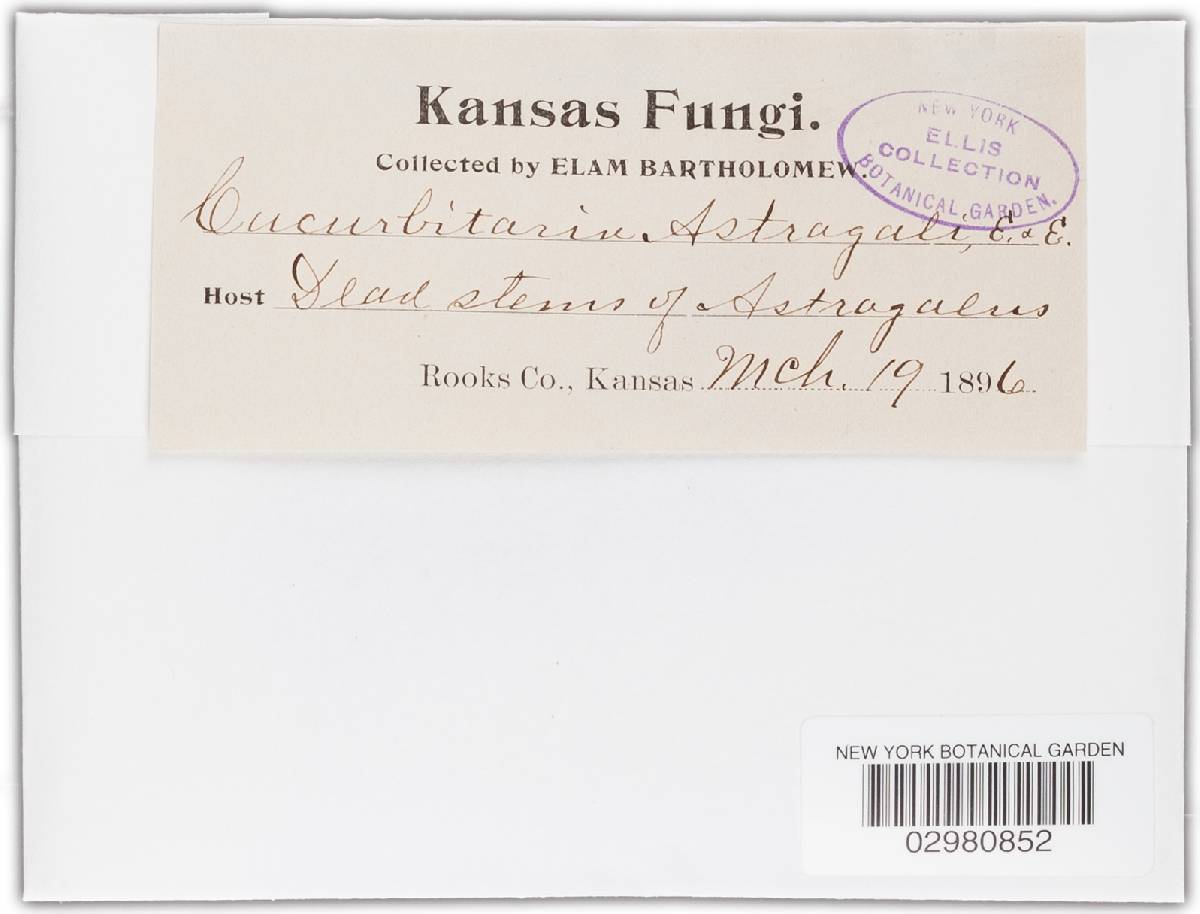 Kansas Fungi.
Collected by ELAM BARTHOLOMEW.
NEW YORK
ELLIS
COLLECTION
BOTANICAL GARDEN.
Cucurbitaria Astragali, E. & E.
Host Dead stems of Astragalus
Rooks Co., Kansas Mch. 19 1896
NEW YORK BOTANICAL GARDEN
02980852